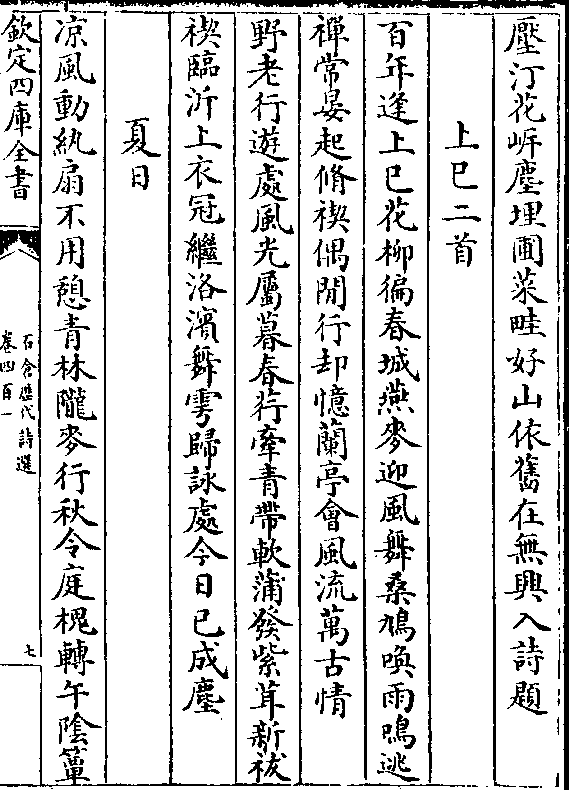 壓汀花㟁塵埋圃菜畦好山依舊在無興入詩題
上巳二首
百年逢上巳花柳徧春城燕麥迎風舞桑鳩喚雨鳴逃
禪常晏起脩禊偶閒行却憶蘭亭會風流萬古情
野老行遊處風光屬暮春荇牽青帶軟蒲發紫茸新祓
禊臨沂上衣冠繼洛濱舞雩歸詠處今日已成塵
夏日
凉風動紈扇不用憩青林隴麥行秋令庭槐轉午陰簟
欽定四庫全書
石倉歷代詩選
卷四百一
七